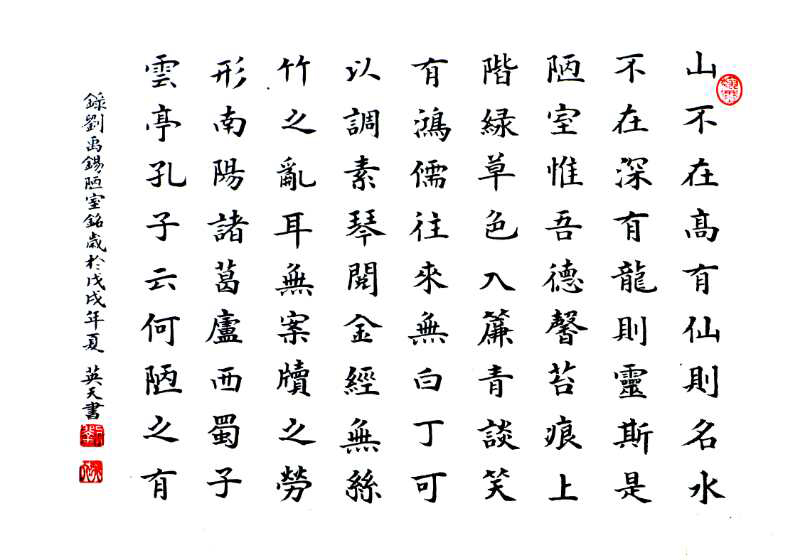 山不在髙有仙則名水
不在深有龍則靈斯是
陋室惟吾德馨苔痕上
階緑草色入簾青談笑
有鴻儒往來無白丁可
以調素琴閱金經無絲
竹之亂耳無案牘之勞
形南陽諸葛廬西蜀子
雲亭孔子云何陋之有
錄劉禹錫陋室銘歲於戊戌年夏 英天書